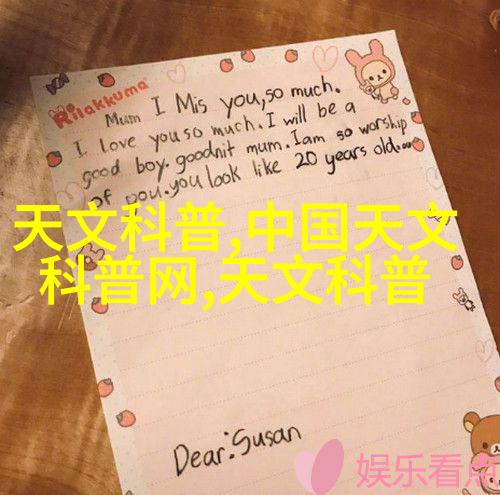 Rilakkuma
Mum I Mis you,so much.
I love you so much. I will be a
good boy. goodnit mum. Iam so worship
of you. you look like 20 years old.
天文科普,中国天文
科普网,天文科普
Dear:Susan
娱乐看点